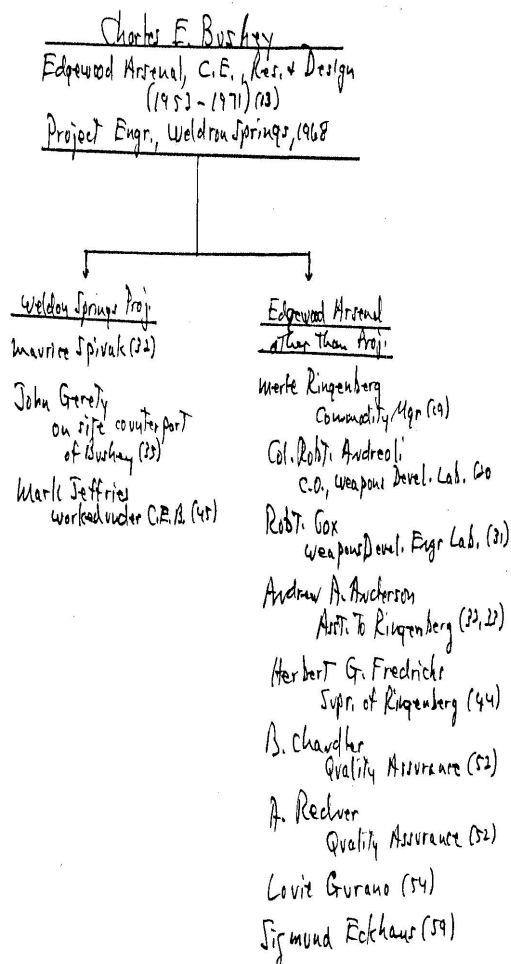 Charles E. Bushey
Edgewood Arsenal, C.E., Res. & Design
(1953-1971) (13)
Project Engr., Weldron Springs, 1968
Weldon Springs Proj.
Maurice Spivak (32)
John Gerety
on site counterpart
of Bushey (35)
Mark Jeffries
worked under C.E.B. (45)
Edgewood Arsenal
other than Proj.
Merle Ringenberg
Commodity Mgr (19)
Col. Robt. Andreoli
C.O., Weapons Devel. Lab.
Robt. Cox
Weapons Devel. Engr Lab. (31)
Andrew A. Anderson
Asst. To Ringenberg (32, 33)
Herbert G. Fredrichs
Supr. of Ringenberg (44)
B. Chandler
Quality Assurance (52)
A.
Quality Assurance (52)
Louie Gurano (54)
Sigmund Eckhaus (59)